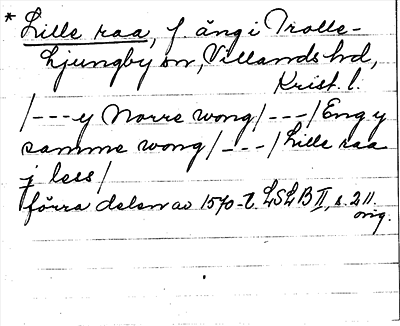 * Lille raa, f. äng i Trolle-
Ljungby sn, Villands hd,
Krist. l.
/---y Norre wong/---/Eng y
samme wong/---/Lille raa
j less/
förra delen av 1570-t. LSLB II, s. 211.
orig.